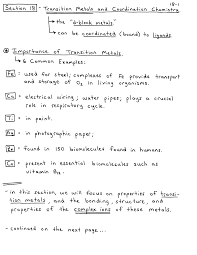 18-1
Section 18 - Transition Metals and Coordination Chemistry
→ the "d-block metals"
→ can be coordinated (bound) to ligands.
* Importance of Transition Metals
↳ 6 Common Examples:
Fe: used for steel; complexes of Fe provide transport
and storage of O2 in living organisms.
Cu: electrical wiring; water pipes; plays a crucial
role in respiratory cycle.
Ti: in paint.
Ag: in photographic paper;
Zn: found in 150 biomolecules found in humans.
Co: present in essential biomolecules such as
vitamin B12.
- in this section, we will focus on properties of transi-
tion metals, and the bonding, structure, and
properties of the complex ions of these metals.
- continued on the next page...